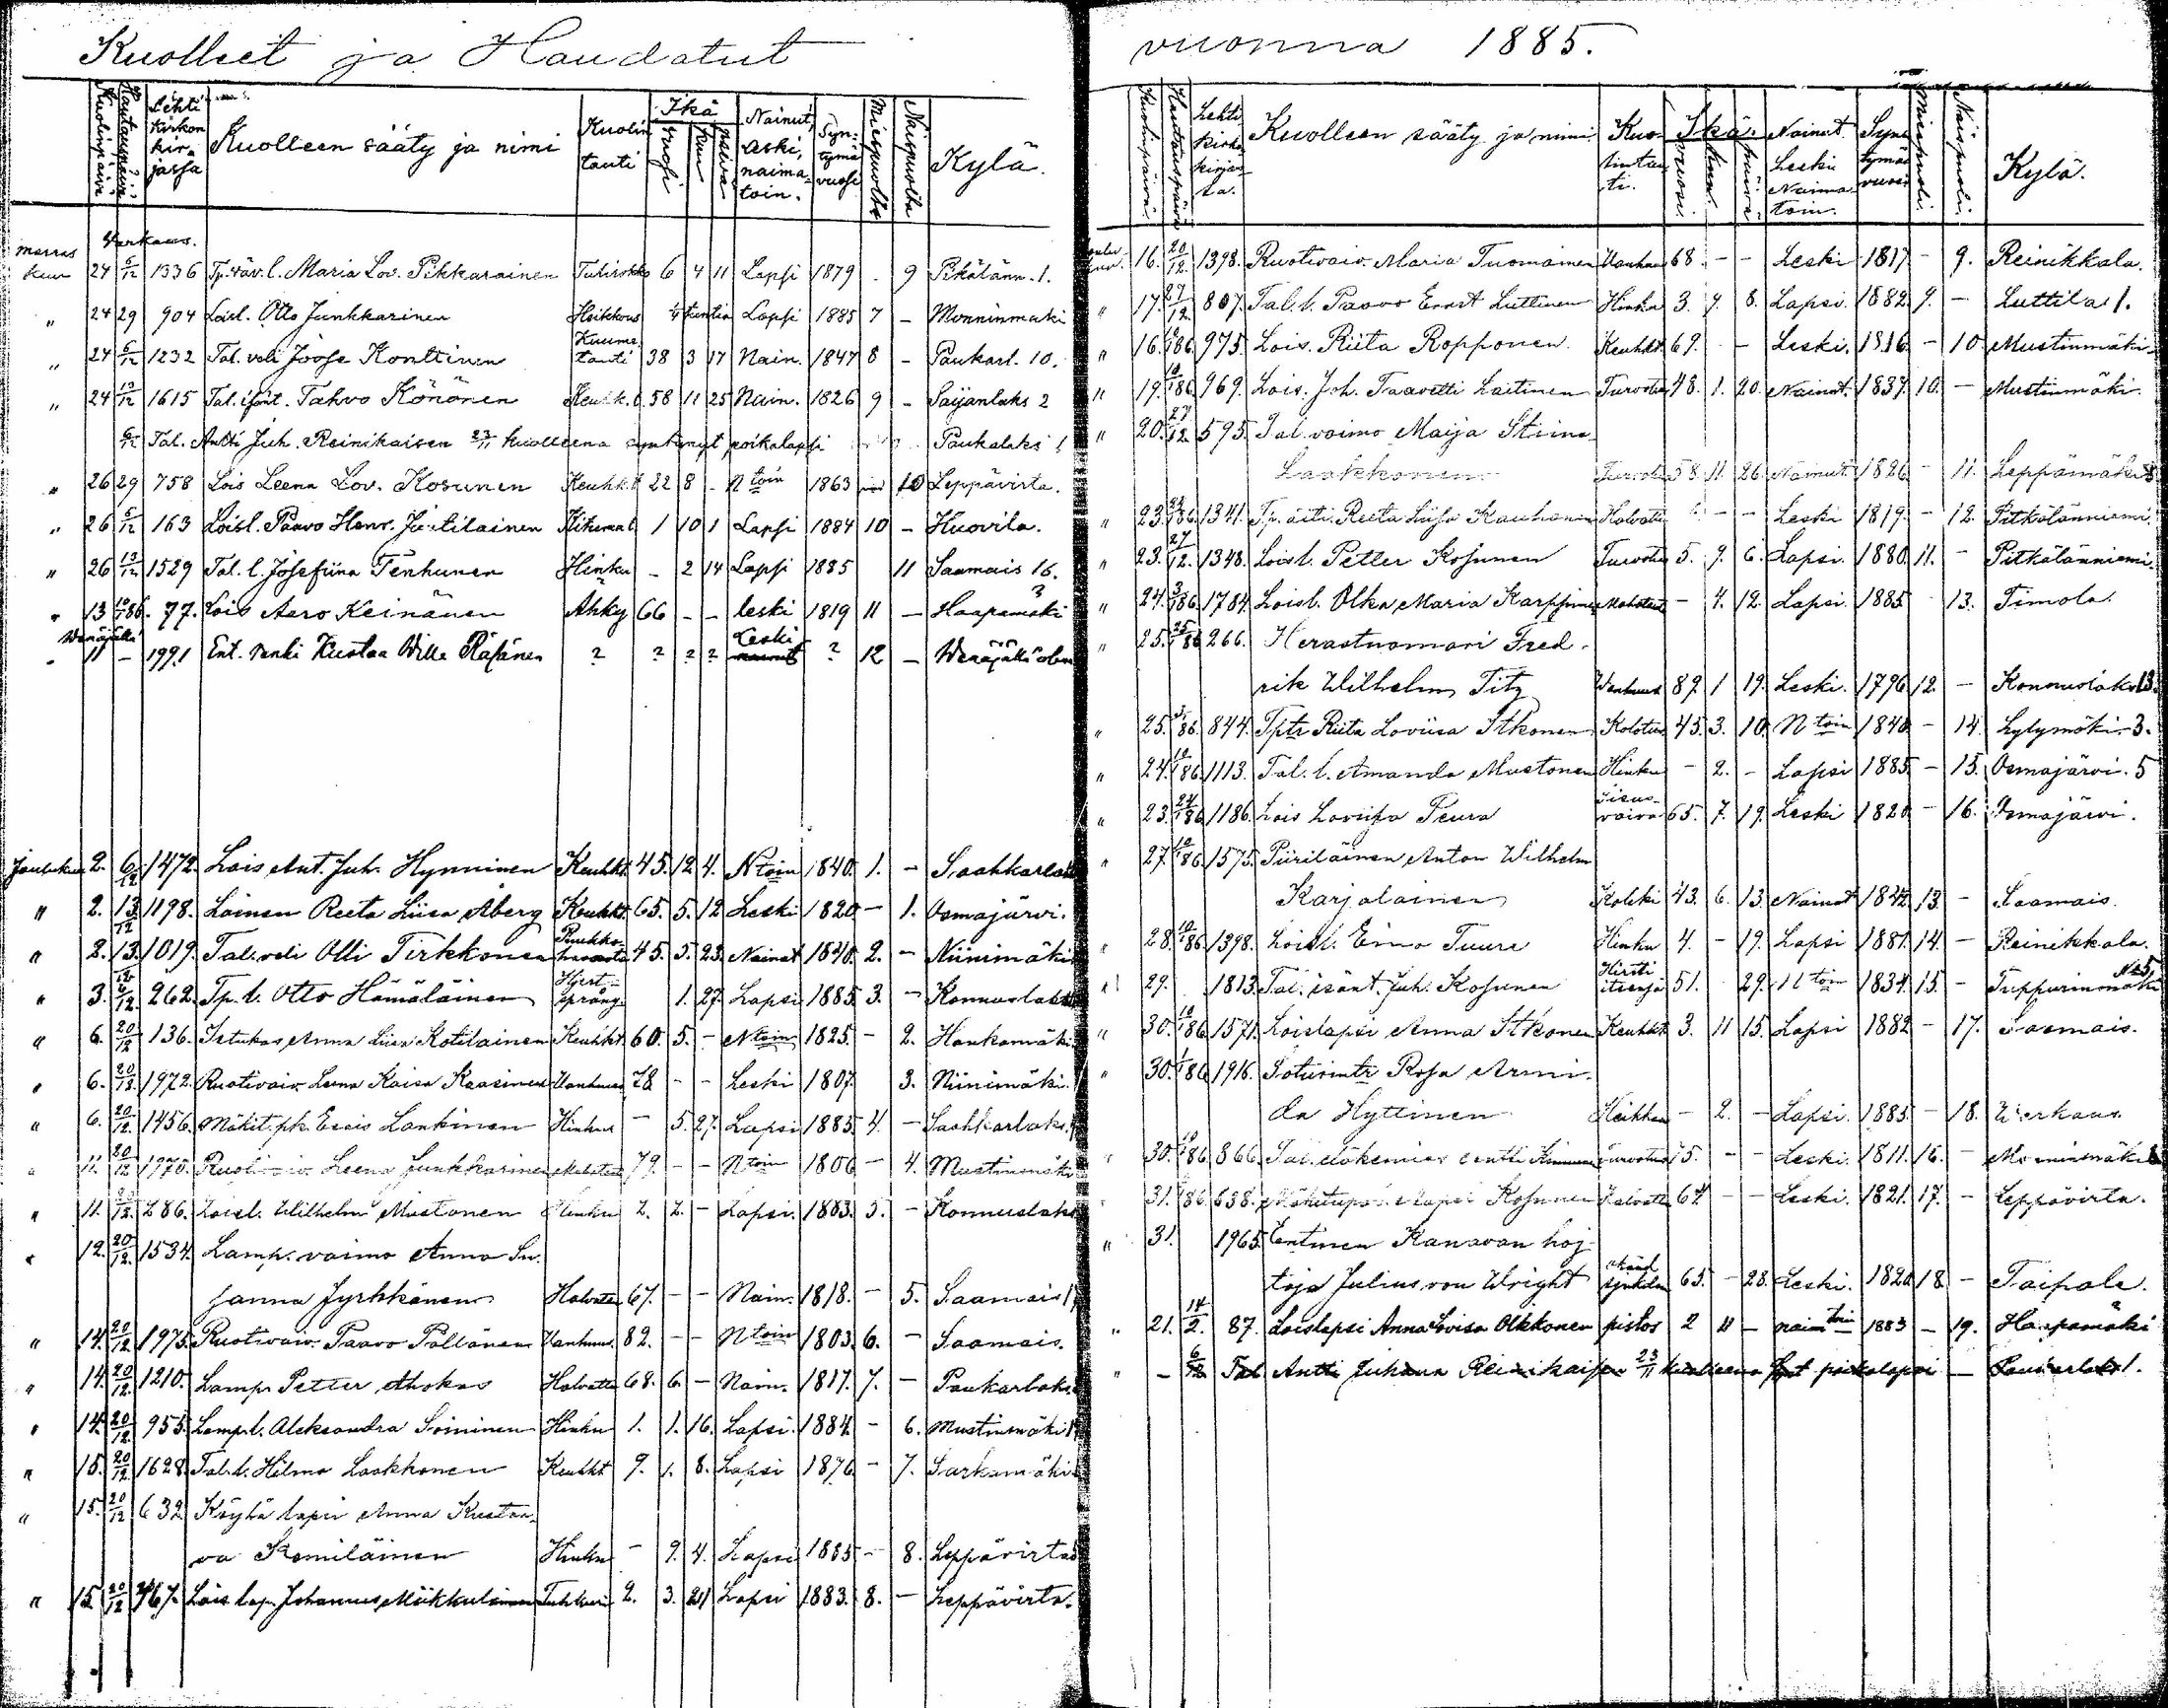 Kuolleet ja Haudatut
Kuolinpäivä Hautauspäivä Lehti kirkonkirjassa Kuolleen sääty ja nimi Kuolin tauti Ikä vuosi kuu päivä Nainut, Leski, naimatoin. Syntymä vuosi Miespuolia Naispuolia Kylä.
Warkaus.
Marraskuu 24 6/12 1336 Tp. räv. l. Maria Lov. Pikkarainen Tulirokko 6 4 11 Lapsi 1879 - 9 Pitkälänn. 1.
" 24 29 904 Loisl. Otto Junkkarinen Heikkous 1/4 tuntia Lapsi 1885 7 - Monninmäki
" 24 6/12 1232 Tal. veli Joose Konttinen Kuume tauti 38 3 17 Nain. 1847 8 - Paukarl. 10.
" 24 13/12 1615 Tal. isänt. Tahvo Könönen Keuhk.t 58 11 25 Nain. 1826 9 - Saijanlaks 2
6/12 Tal. Antti Juh. Reinikaisen 23/11 kuolleena syntynyt poikalapsi Paukalaks 1
" 26 29 758 Lois Leena Lov. Kosunen Keuhk.t 22 8 - Ntoin 1863 10 Leppävirta.
" 26 6/12 163 Loisl. Paavo Henr. Juutilainen 1 10 1 Lapsi 1884 10 - Huovila.
" 26 13/12 1529 Tal. l. Josefiina Tenhunen Hinku - 2 14 Lapsi 1885 11 Saamais 16.
" 13 10/186. 77. Lois Aaro Keinänen Ahky 66 - - leski 1819 11 - Haapamäki 3
Wenäjällä
" 11 - 1991 Ent. renki Kustaa Wille Räsänen ? ? ? ? Leski ? 12 - Wenäjällä olev
Joulukuu 2. 6/12 1472. Lois Ant. Juh. Hynninen Keuhkt 45. 12 4. Ntoin 1840. 1. - Saahkarlaks
" 2. 13/12 1198. Loinen Reeta Liisa Åberg Keuhkt. 65. 5. 12 Leski 1820 - 1. Osmajärvi.
" 2. 13. 1019. Tal. veli Olli Tirkkonen 45. 5. 23. Nainut 1840. 2. - Niinimäki
" 3. 6/12. 262. Tp. l. Otto Hämäläinen Hjertspräng. 1. 27. Lapsi 1885 3. - Konnuslaks
" 6. 20/12 136. Istukas Anna Liisa Kotilainen Keuhkt. 60. 5. - Ntoin 1825. - 2. Honkamäki
" 6. 20/12. 1972. Ruotivaiv. Leena Kaisa Kaasinen Vanhuus 78 - - Leski 1807. 3. Niinimäki.
" 6. 20/12. 1456. Mäkit. pk. Esais Lankinen Hinku - 5. 27. Lapsi 1885 4. - Saahkarlaks.
" 11. 20/12 1970. Ruotivaiv. Leena Junkkarinen 79. - - Ntoin 1806 - 4. Mustinmäki
" 11. 286. Loisl. Wilhelm Mustonen Hinku 2. 2. - Lapsi. 1883. 5. - Konnuslaks
" 12. 20/12. 1534. Lamp. vaimo Anna Su-
sanna Jyrkkänen Halvatt. 67. - - Nain. 1818. - 5. Saamais 1
" 14. 20/12 1975. Ruotivaiv. Paavo Pöllänen Vanhuus. 82. - - Ntoin 1803. 6. - Saamais.
" 14. 20/12. 1210. Lamp. Petter Ahokas Halvatt. 68. 6. - Nain. 1817. 7. - Paukarlaks.
" 14. 20/12. 955. Lamp. l. Aleksandra Soininen Hinku 1. 1. 16. Lapsi. 1884. - 6. Mustinmäki 1
" 15. 20/12. 1628. Tal. l. Hilma Laakkonen Keuhkt 9. 1. 8. Lapsi 1876 - 7. Sarkamäki
" 15. 20/12 632 Köyhä lapsi Anna Kustaa-
va Kemiläinen Hinku - 9. 4. Lapsi 1885 - 8. Leppävirta
" 15. 20/12 767. Lois lap. Johannes Miikkulainen Tuhkuri 2. 3. 21 Lapsi 1883. 8. - Leppävirta.
vuonna 1885.
Kuolinpäivä Hautauspäivä Lehti kirkonkirjassa. Kuolleen sääty ja nimi Kuolintauti. Ikä. vuosi. kuu. päivä. Nainut. Leski Naimatoin. Syntymävuosi Miespuoli. Naispuoli. Kylä.
Jouluk. 16. 20/12. 1398. Ruotivaiv. Maria Tuomainen Vanhuus 68. - - Leski 1817 - 9. Reinikkala.
" 17. 27/12. 807. Tal. l. Paavo Ernst Luttinen Hinku 3. 7. 8. Lapsi. 1882. 9. - Luttila 1.
" 16. 10/186 975. Lois. Riita Ropponen Keuhkt 69. - Leski. 1816 - 10 Mustinmäki
" 19. 10/186 969. Lois. Joh. Taavetti Laitinen Turvotus 48. 1. 20. Nainut. 1837. 10. - Mustinmäki.
" 20. 27/12 595. Tal. vaimo Maija Stiina
Laakkonen Turvotus 58. 11. 26. Nainut. 1826 - 11. Leppämäki 8
" 23. 186. 1341. Tp. äiti Reeta Liisa Kauhanen Halvatt. - - Leski 1819. - 12. Pitkälänniemi.
" 23. 27/12. 1348. Loisl. Petter Kosunen Turvotus 5. 9. 6. Lapsi. 1880. 11. - Pitkälänniemi.
" 24. 3/186. 1784. Loisl. Olka Maria Karppinen - 4. 12. Lapsi. 1885 13. Timola.
" 25. 25/186 266. Herastuomari Fred-
rik Wilhelm Titz Vanhuus 89. 1 19. Leski. 1796 12. - Konnuslaks 13.
" 25. 186. 844. Tptr Riita Loviisa Itkonen Kolotus 45. 3. 10. Ntoin 1840 - 14. Lylymäki 3.
" 24. 10/186 1113. Tal. l. Amanda Mustonen Hinku - 2. - Lapsi 1885. - 15. Osmajärvi. 5
" 23. 24/186 1186. Lois Loviisa Teura 65. 7. 19. Leski 1820 - 16. Osmajärvi.
" 27. 10/186 1575. Piiriläinen Anton Wilhelm
Karjalainen Kolotus 43. 6. 13. Nainut 1842 13. - Saamais.
" 28. 10/186 1398. Loisl. Eino Tuure Hinku 4. - 19. Lapsi 1881. 14. - Reinikkala.
" 29. 1813. Tal. isänt. Juh. Kosunen Hirtti itsensä 51. 29. Ntoin 1834. 15. - Tuppurinmäki No5.
" 30. 10/186 1571. Loislapsi Anna Itkonen Keuhkt 3. 11 15. Lapsi 1882 - 17. Saamais.
" 30. 1/186 1916. Soturintr Rosa Armi-
da Hyttinen Heikkous - 2. - Lapsi. 1885. - 18. Warkaus.
" 30. 10/186 866. Tal. eläkemies Antti Turvotus 75. - - Leski. 1811. 16. - Monninmäki
" 31. 186. 638. Kosunen Halvatt. 64 - - Leski. 1821. 17. - Leppävirta.
" 31. 1965. Entinen Kanavan hoi-
taja Julius von Wright 65. - 28. Leski. 1820 18 - Taipale.
" 21. 14/2. 87. Loislapsi Anna Lovisa Olkkonen pistos 2 11 - naimtoin 1883 - 19. Haapamäki
" - 6/12 Tal Antti Juhana Reinikaisen 23/11 kuolleena synt poikalapsi - Paukarlaks 1.